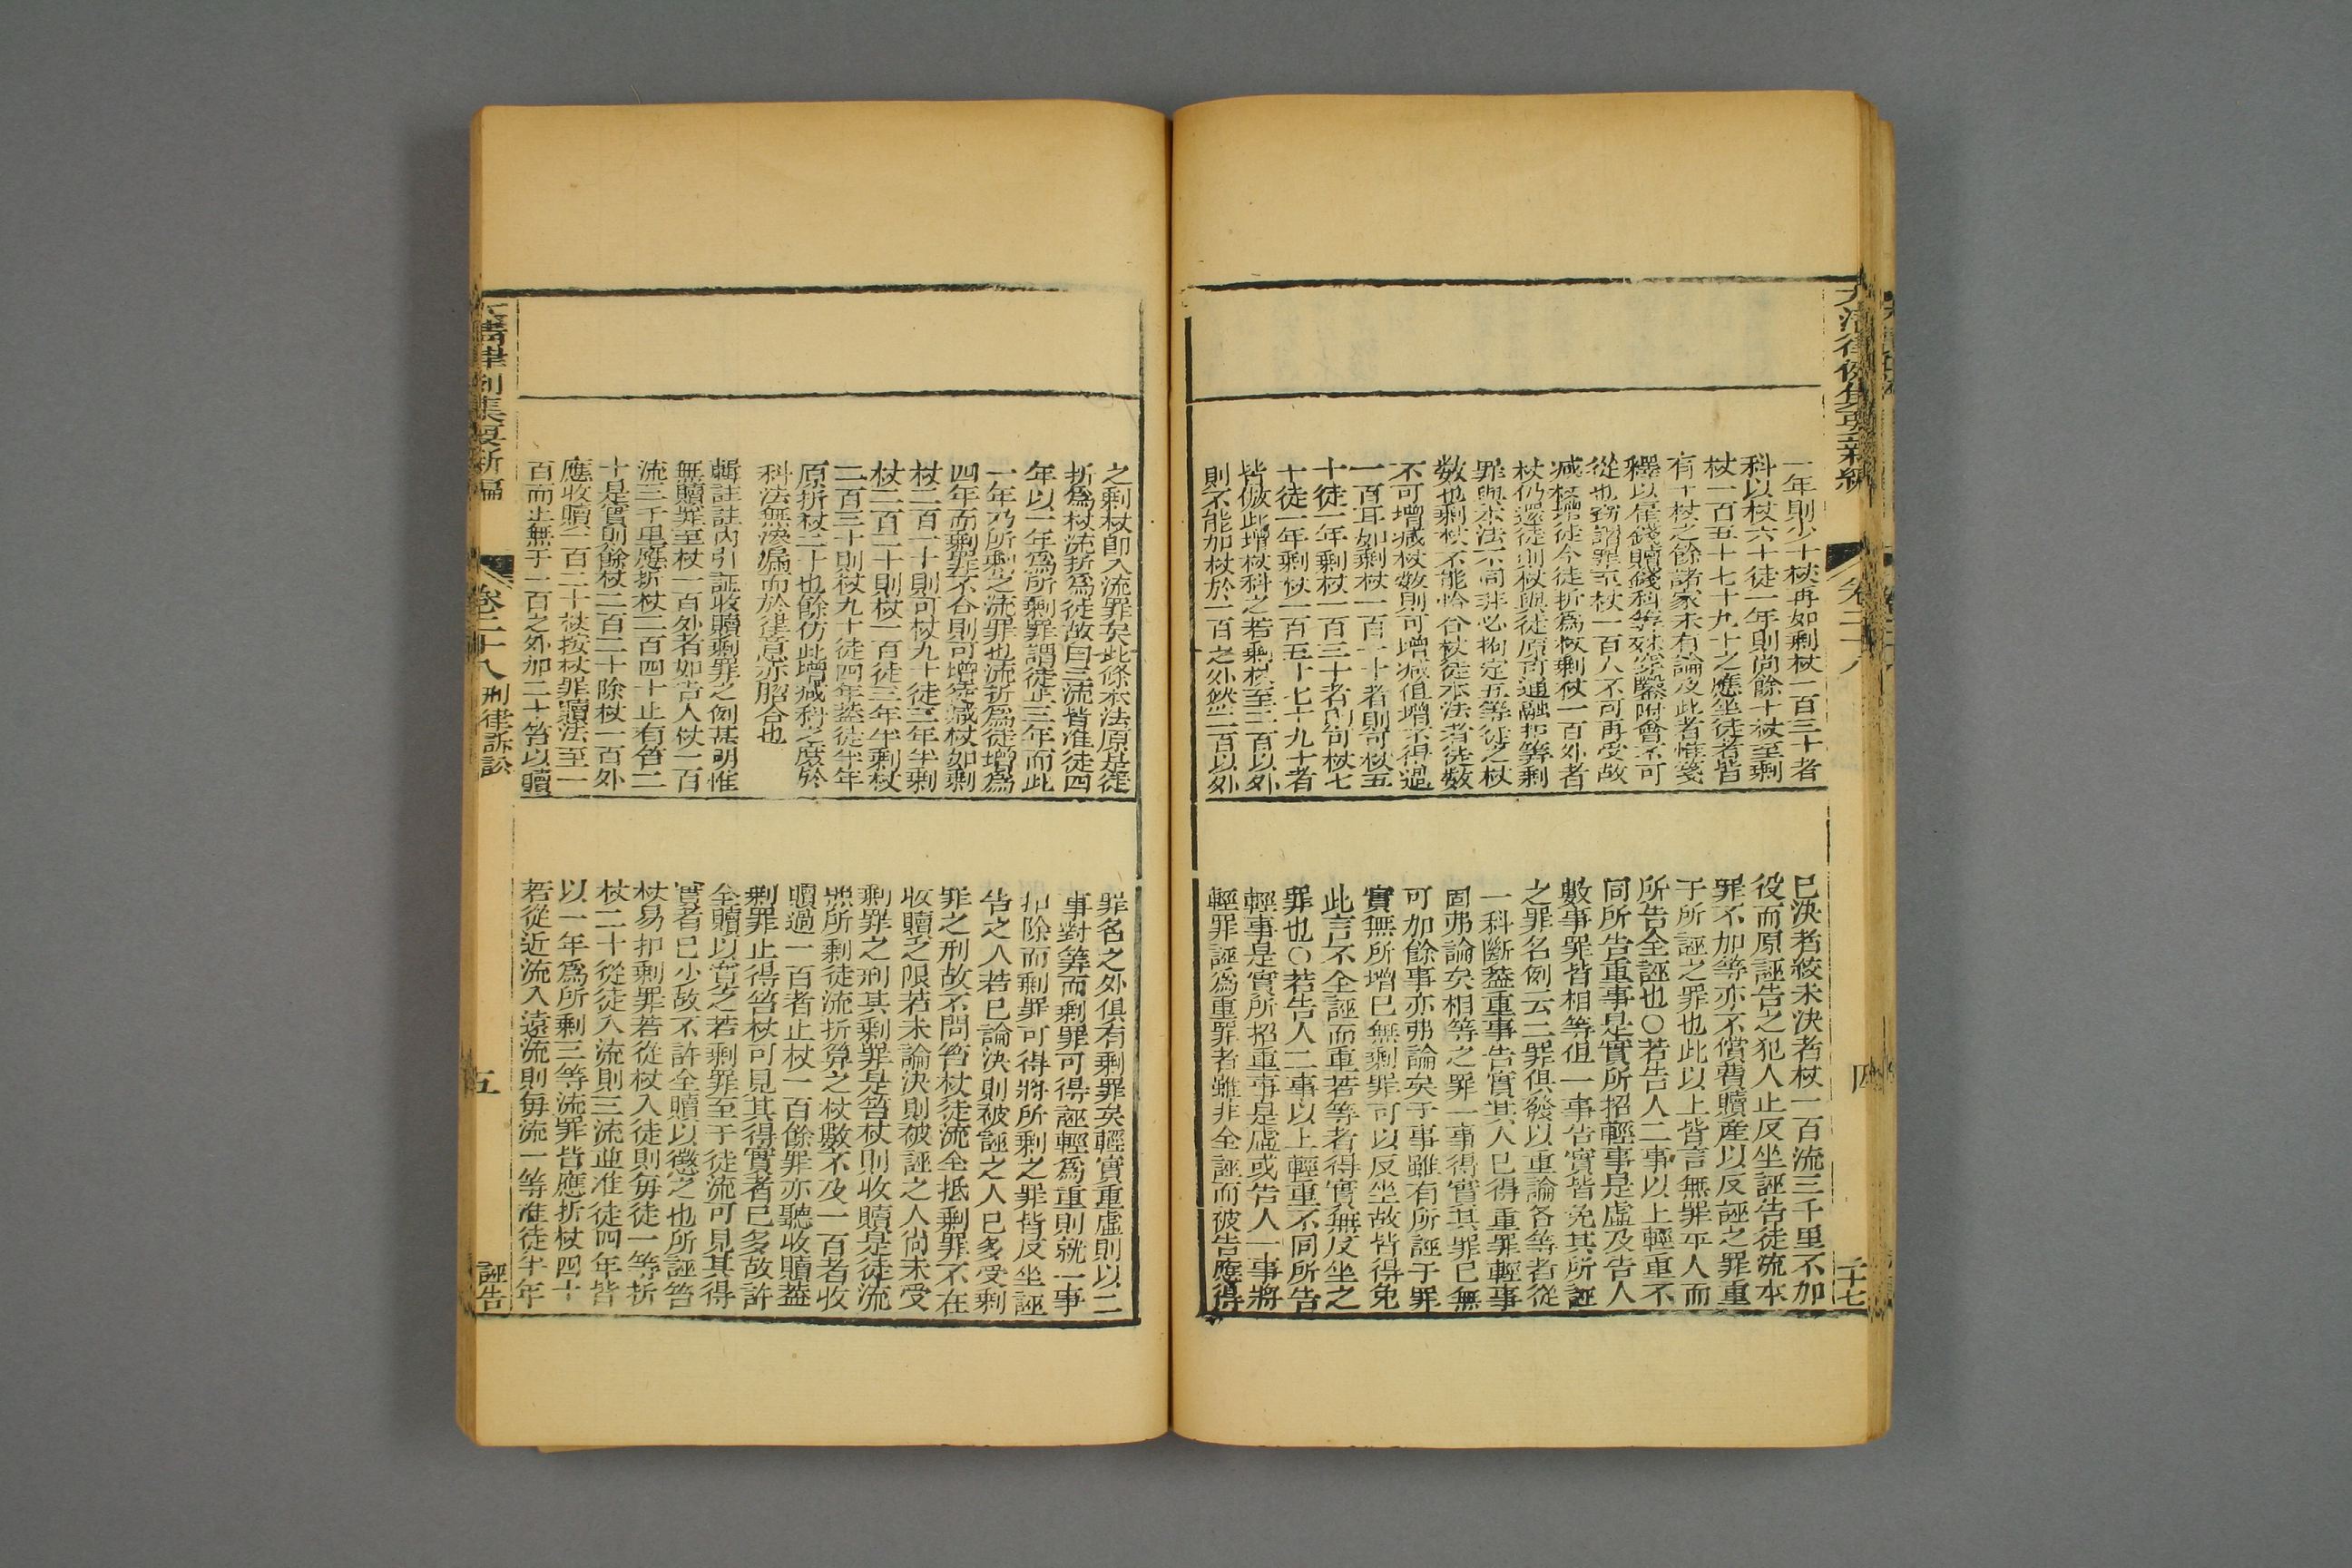 一年則少十杖再如剩杖一百三十者
科以杖六十徒一年則尚餘十杖至剩
杖一百五十七十九十之應坐徒者皆
有十杖之餘諸家未有論及此者惟箋
釋以雇錢贖錢科等殊深繫附會不可
從也竊謂罪至杖一百八不可再受故
減杖增徒今徒折爲杖剩杖一百外者
杖仍還徒則杖與徒原可通融扣筭剩
罪與本法不同非必拘定五等徒之杖
數也剩杖不能恰合杖徒本法者徒數
不可增減杖數則可增減但增不得過
一百耳如剩杖一百一十者則可杖五
十徒一年剩杖一百三十者則可杖七
十徒一年剩杖一百五十七十九十者
皆倣此增杖科之若剩杖至二百以外
則不能加杖於一百之外然二百以外
已決者絞未決者杖一百流三千里不加
役而原誣告之犯人止反坐誣告徒流本
罪不加等亦不償費贖産以反誣之罪重
于所誣之罪也此以上皆言無罪平人而
所告全誣也○若告人二事以上輕重不
同所告重事是實所招輕事是虛及告人
數事罪皆相等但一事告實皆免其所誣
之罪名例云二罪俱發以重論各等者從
一科斷蓋重事告實其人已得重罪輕事
固弗論矣相等之罪一事得實其罪已無
可加餘事亦弗論矣于事雖有所誣于罪
實無所增已無剩罪可以反坐故皆得免
此言不全誣而重若等者得實無反坐之
罪也○若告人二事以上輕重不同所告
輕事是實所招重事是虛或告人一事將
輕罪誣爲重罪者雖非全誣而被告應得
大清律例集要新編
卷二十八
四
二十七
之剩杖即入流罪矣此條本法原是徒
折爲杖流折爲徒故曰三流皆准徒四
年以一年爲所剩罪謂徒止三年而此
一年乃所剩之流罪也流折爲徒增爲
四年而剩罪不合則可增徒減杖如剩
杖二百一十則可杖九十徒三年半剩
杖二百二十則杖一百徒三年半剩杖
二百三十則杖九十徒四年蓋徒半年
原折杖二十也餘仿此增減科之庶於
科法無滲漏而於律意亦脗合也
輯註註內引証收贖剩罪之例甚明惟
無贖罪至杖一百外者如告人杖一百
流三千里應折杖二百四十止有笞二
十是實則餘杖二百二十除杖一百外
應收贖一百二十杖按杖罪贖法至一
百而止無于一百之外加二十笞以贖
罪名之外俱有剩罪矣輕實重虛則以二
事對筭而剩罪可得誣輕爲重則就一事
扣除而剩罪可得將所剩之罪皆反坐誣
告之人若已論決則被誣之人已多受剩
罪之刑故不問笞杖徒流全抵剩罪不在
收贖之限若未論決則被誣之人尚未受
剩罪之刑其剩罪是笞杖則收贖是徒流
照所剩徒流折筭之杖數不及一百者收
贖過一百者止杖一百餘罪亦聽收贖蓋
剩罪止得笞杖可見其得實者已多故許
全贖以寬之若剩罪至于徒流可見其得
實者已少故不許全贖以懲之也所誣笞
杖易扣剩罪若從杖入徒則每徒一等折
杖二十從徒入流則三流並准徒四年皆
以一年爲所剩三等流罪皆應折杖四十
若從近流入遠流則每流一等准徒半年
大清律例集要新編
卷二十八 刑律訴訟
五
誣告